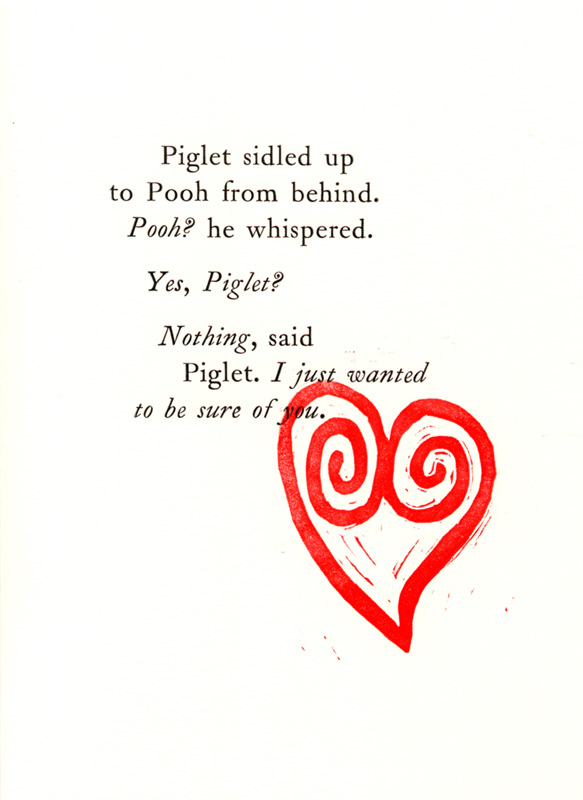 Piglet sidled up
to Pooh from behind.
Pooh? he whispered.
Yes, Piglet?
Nothing, said
Piglet. I just wanted
to be sure of you.